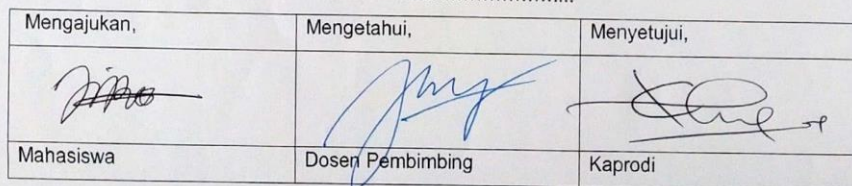 Mengajukan, Mengetahui, Menyetujui,
Mahasiswa Dosen Pembimbing Kaprodi